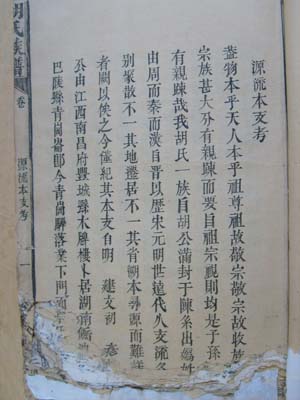 源流本支考
蓋物本乎天人本乎祖尊祖故敬宗敬宗故收族
宗族甚大分有親疎而要自祖宗視則均是子孫
有親疎哉我胡氏一族自胡公滿封于陳系出媯姓
由周而秦而漢自晋以歷宋元明世遠代久支流条
別蒙散不一其地遷居不一其省溯本尋源而難詳
者闕以俟之今僅紀其本支自明 建文初
公由江西南昌府豐城縣木牌樓卜居湖南
巴陵縣青岡 今青岡驛落業下門
胡氏族譜
卷
源流本支考
一